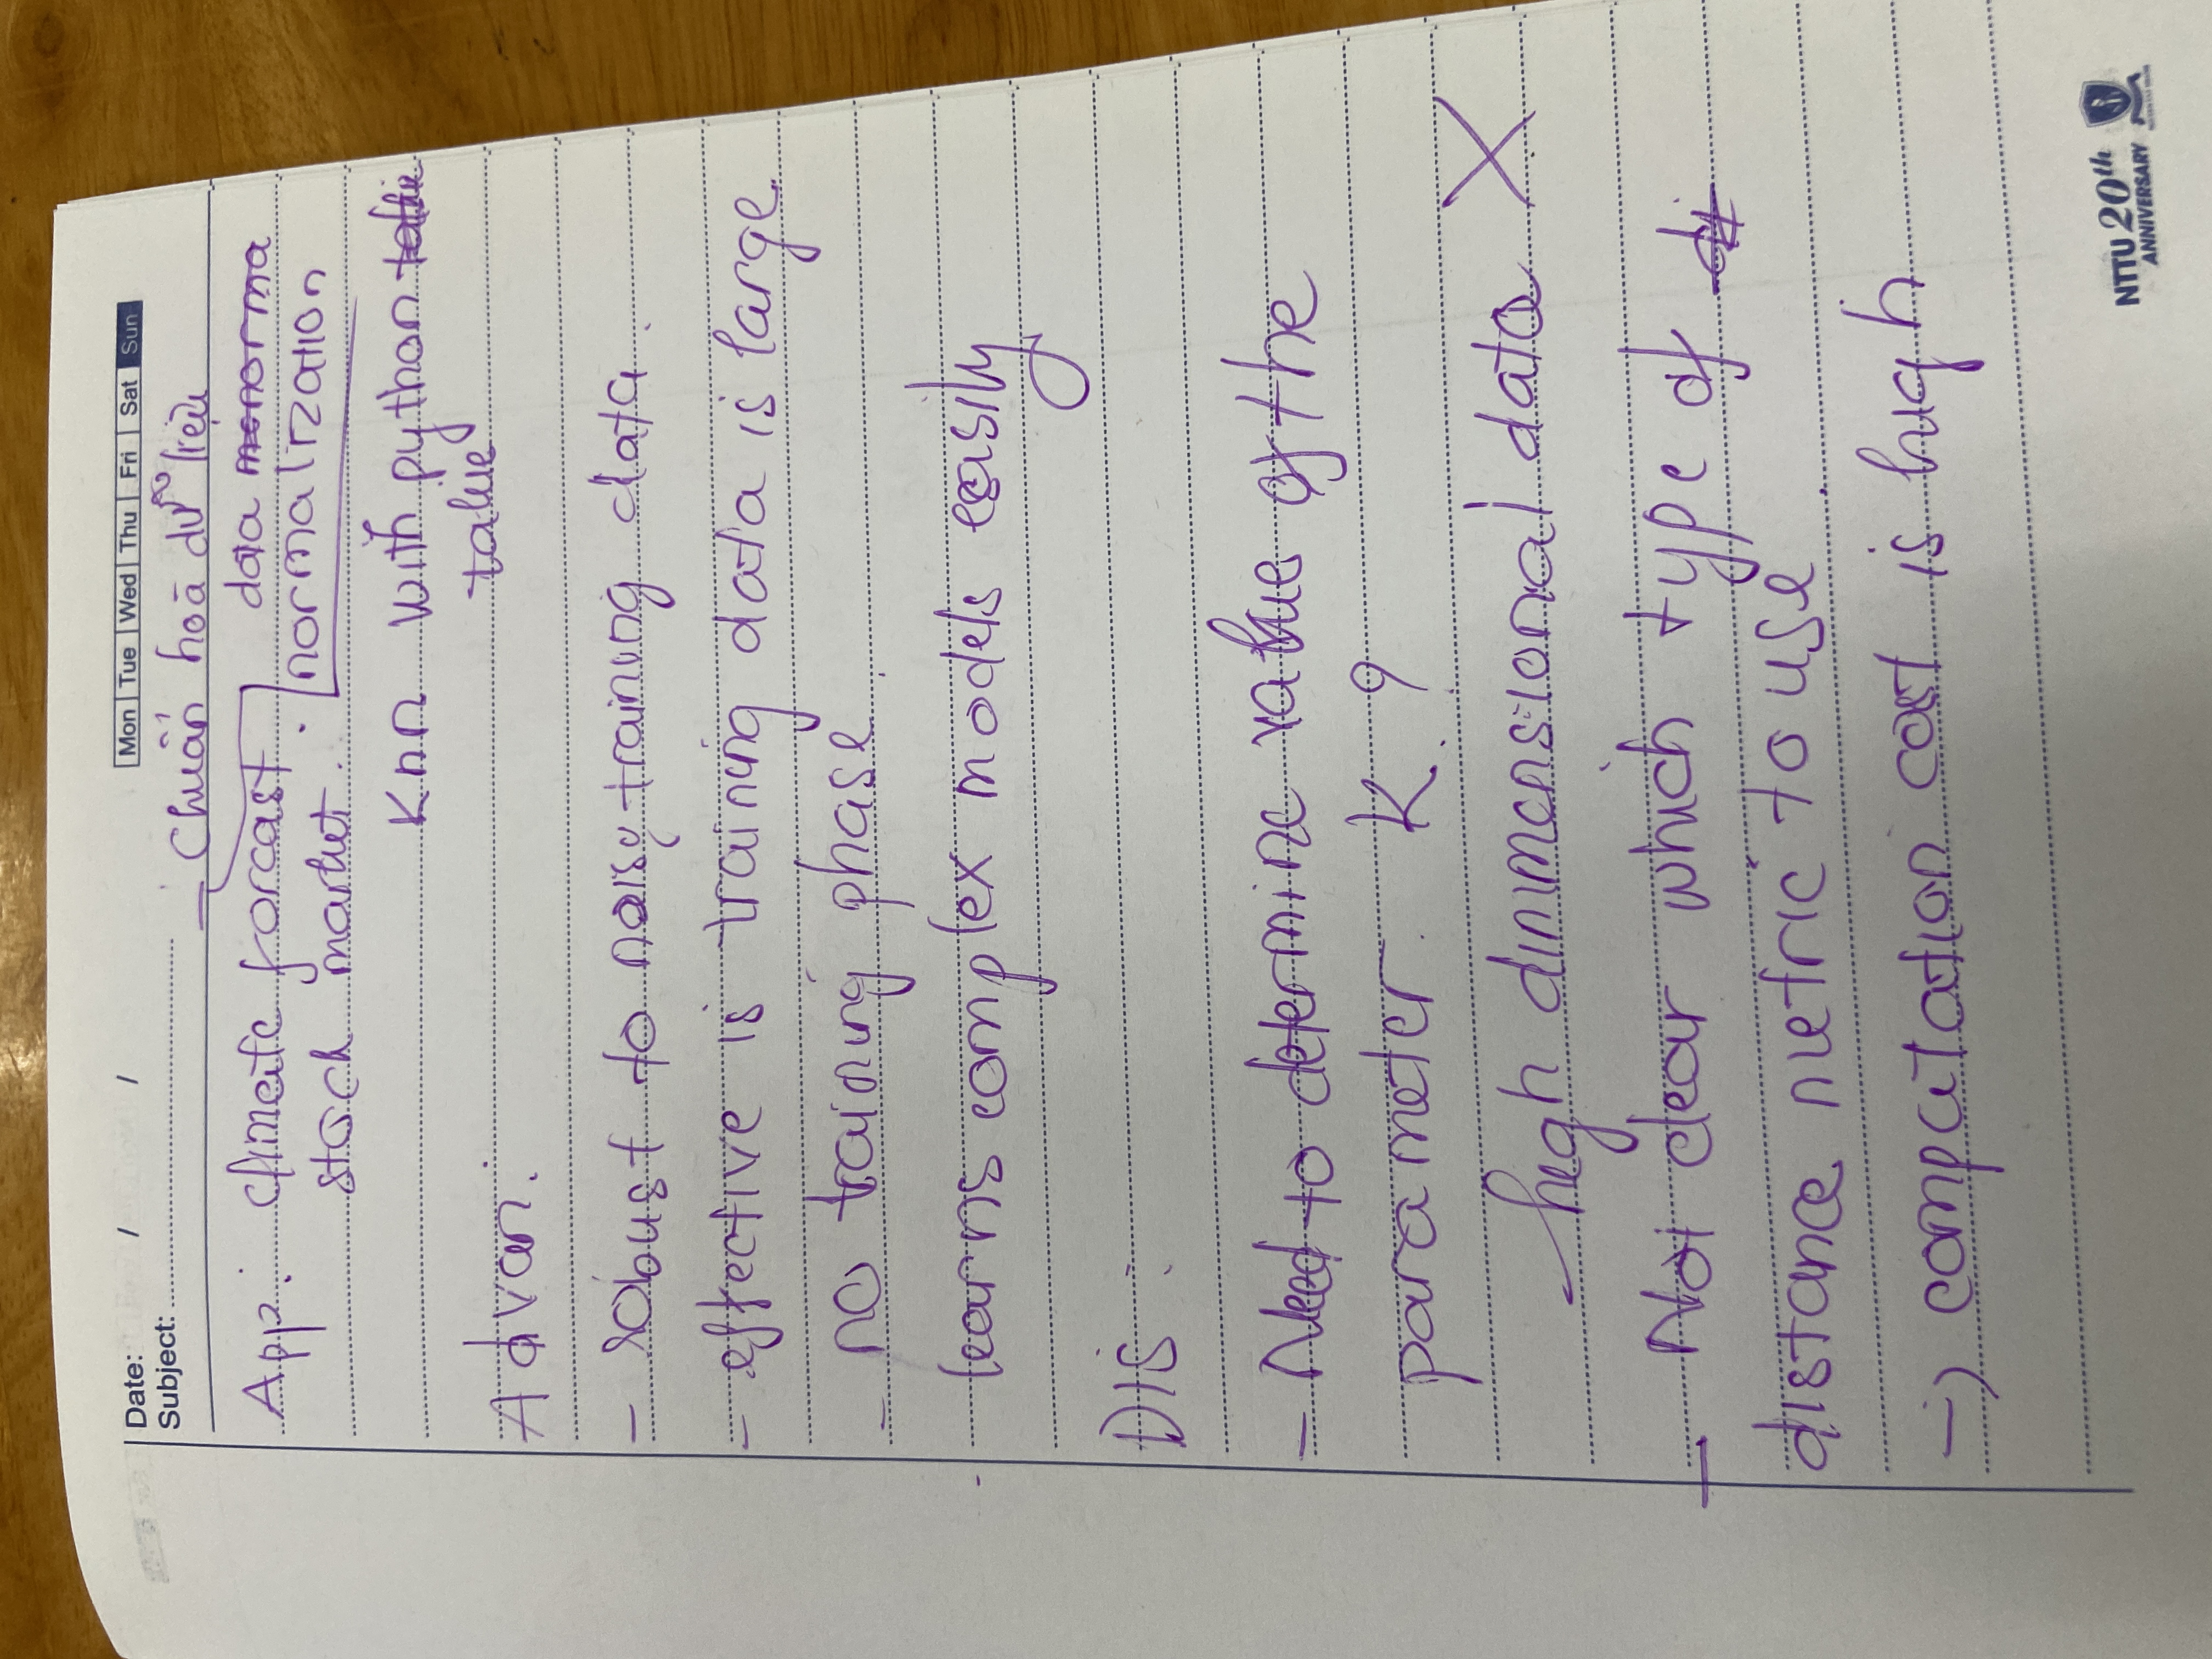 Date: / /
Mon Tue Wed Thu Fri Sat Sun
Subject:
- Chuẩn hoá dữ liệu
App: climate forcast.
data norma
normalization
stock market.
Knn with python
Advan:
- robust to noisy training data.
- effective is training data is large.
- no training phase.
- learns complex models easily
DIS:
- Need to determine value of the
parameter K?
- high dinimensional data X
- Not clear which type of di
distance metric to use.
-) computation cost is high
NTTU 20th
ANNIVERSARY